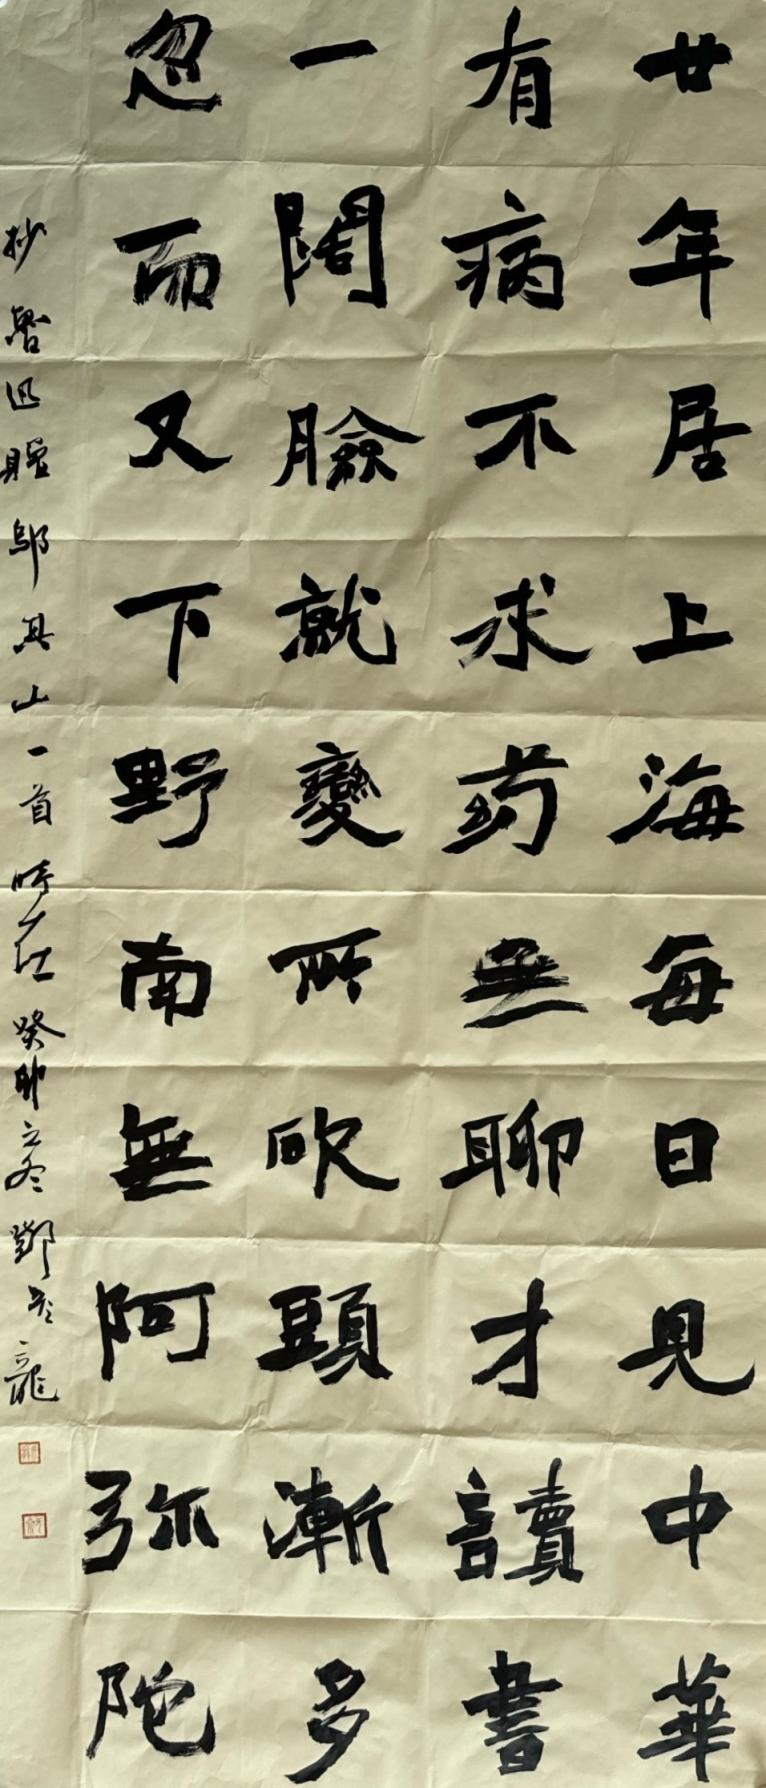 廿年居上海每日見中華
有病不求药無聊才讀書
一闊臉就變所砍頭漸多
忽而又下野南無阿弥陀
抄魯迅贈鄔其山一首時在癸卯立冬鄧龍